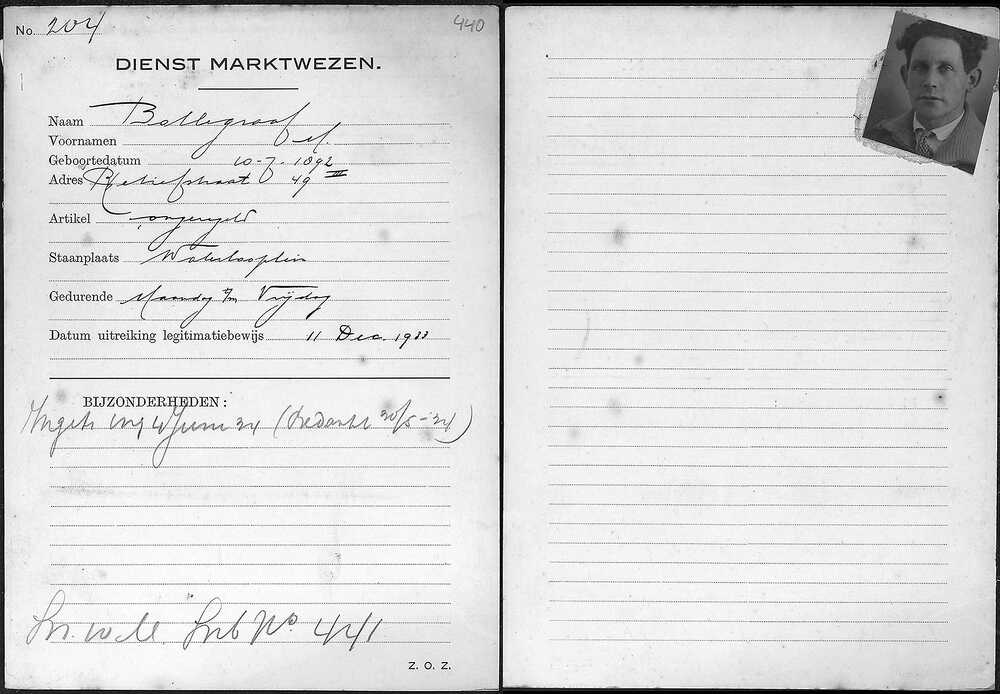 No. 204
440
DIENST MARKTWEZEN.
Naam Bollegraaf
Voornamen M.
Geboortedatum 10-7-1892
Adres Retiefstraat 49 III
Artikel ongeregeld
Staanplaats Waterlooplein
Gedurende Maandag t/m Vrijdag
Datum uitreiking legitimatiebewijs 11 Dec. 1933
BIJZONDERHEDEN:
Ingetr. 4 Juni 34 (Bedankt 30/5-34)
No. 441
Z. O. Z.